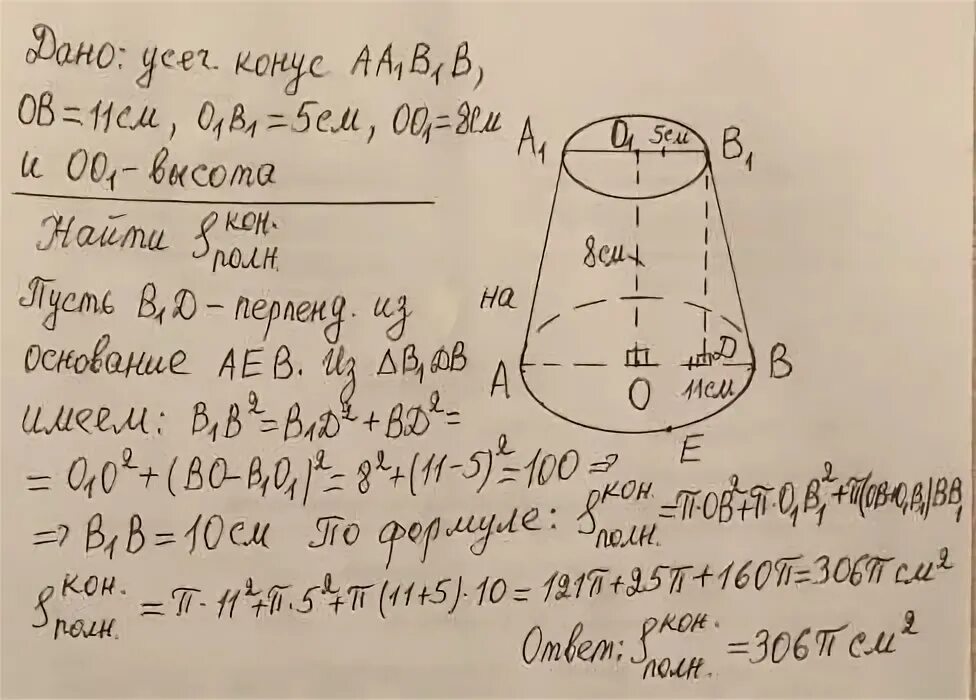 Дано: усеч. конус AA₁B₁B,
OB = 11см, O₁B₁ = 5см, OO₁ = 8см
и OO₁ - высота
Найти Sполн.кон.
Пусть B₁Д - перпенд. из на
основание AEB. Из ΔB₁ДB
имеем: B₁B² = B₁Д² + BД² =
= O₁O² + (BO - B₁O₁)² = 8² + (11-5)² = 100 ⇒
⇒ B₁B = 10см По формуле: Sполн.кон. = π·OB² + π·O₁B₁² + π(OB+O₁B₁)BB₁
Sполн.кон. = π·11² + π·5² + π(11+5)·10 = 121π + 25π + 160π = 306π см²
Ответ: Sполн.кон. = 306π см²
A₁ O₁ 5см B₁
8см
A O Д B
11см
E